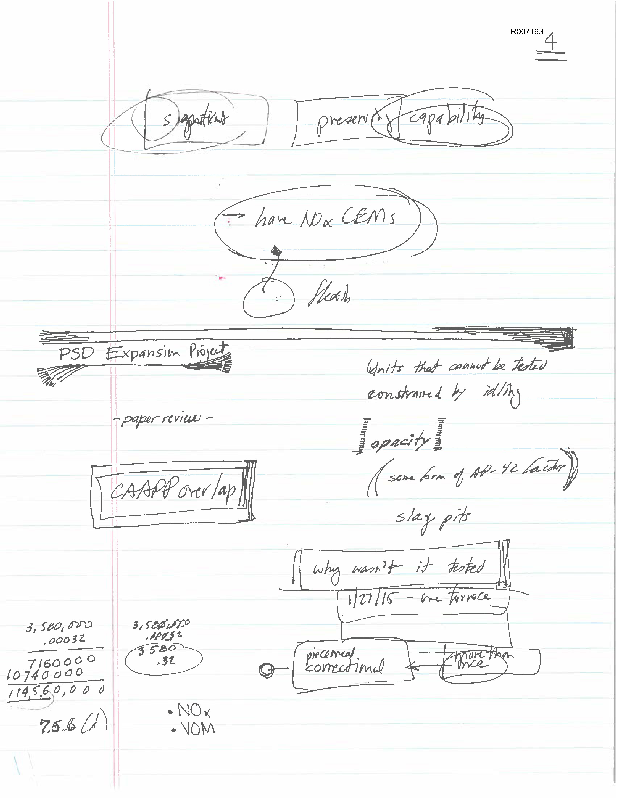 R007193
4
signatures
preservity capability
→ have NOx CEMs
PSD Expansion Project
Units that cannot be tested
constrained by idling
- paper review -
opacity
(some form of AP-42 factor)
CAAPP overlap
slag pits
why wasn't it tested
1/27/15 - one furnace
3,580,000
.00032
7160000
10740000
114,560,000
3,580,000
.00032
3580
.32
piecemeal
correctional
more than
once
• NOx
• VOM